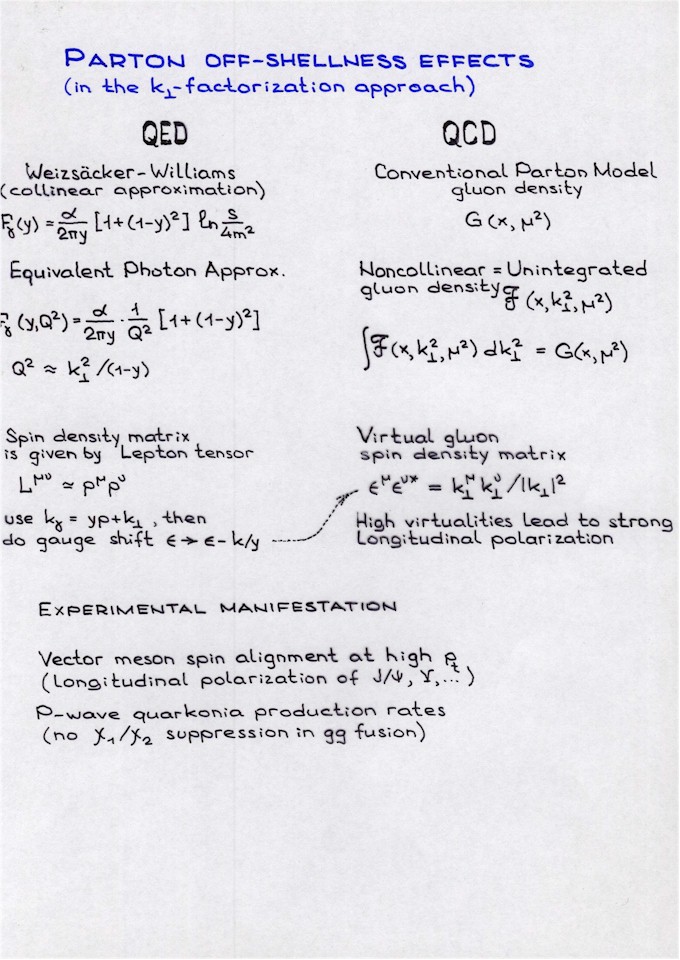 PARTON OFF-SHELLNESS EFFECTS
(in the k⊥-factorization approach)
QED
Weizsäcker-Williams
(collinear approximation)
F_γ(y) = α/2πy [1+(1-y)²] ln s/4m²
Equivalent Photon Approx.
F_γ(y,Q²) = α/2πy · 1/Q² [1+(1-y)²]
Q² ≈ k⊥²/(1-y)
Spin density matrix
is given by Lepton tensor
L^μν ≃ p^μ p^ν
use k_γ = yp+k⊥, then
do gauge shift ϵ → ϵ - k/y
QCD
Conventional Parton Model
gluon density
G(x, μ²)
Noncollinear = Unintegrated
gluon density ℱ(x,k⊥²,μ²)
∫ℱ(x,k⊥²,μ²) dk⊥² = G(x,μ²)
Virtual gluon
spin density matrix
ϵ^μ ϵ^ν* = k⊥^μ k⊥^ν/|k⊥|²
High virtualities lead to strong
Longitudinal polarization
EXPERIMENTAL MANIFESTATION
Vector meson spin alignment at high p_t
(longitudinal polarization of J/ψ, ϒ,...)
P-wave quarkonia production rates
(no χ₁/χ₂ suppression in gg fusion)